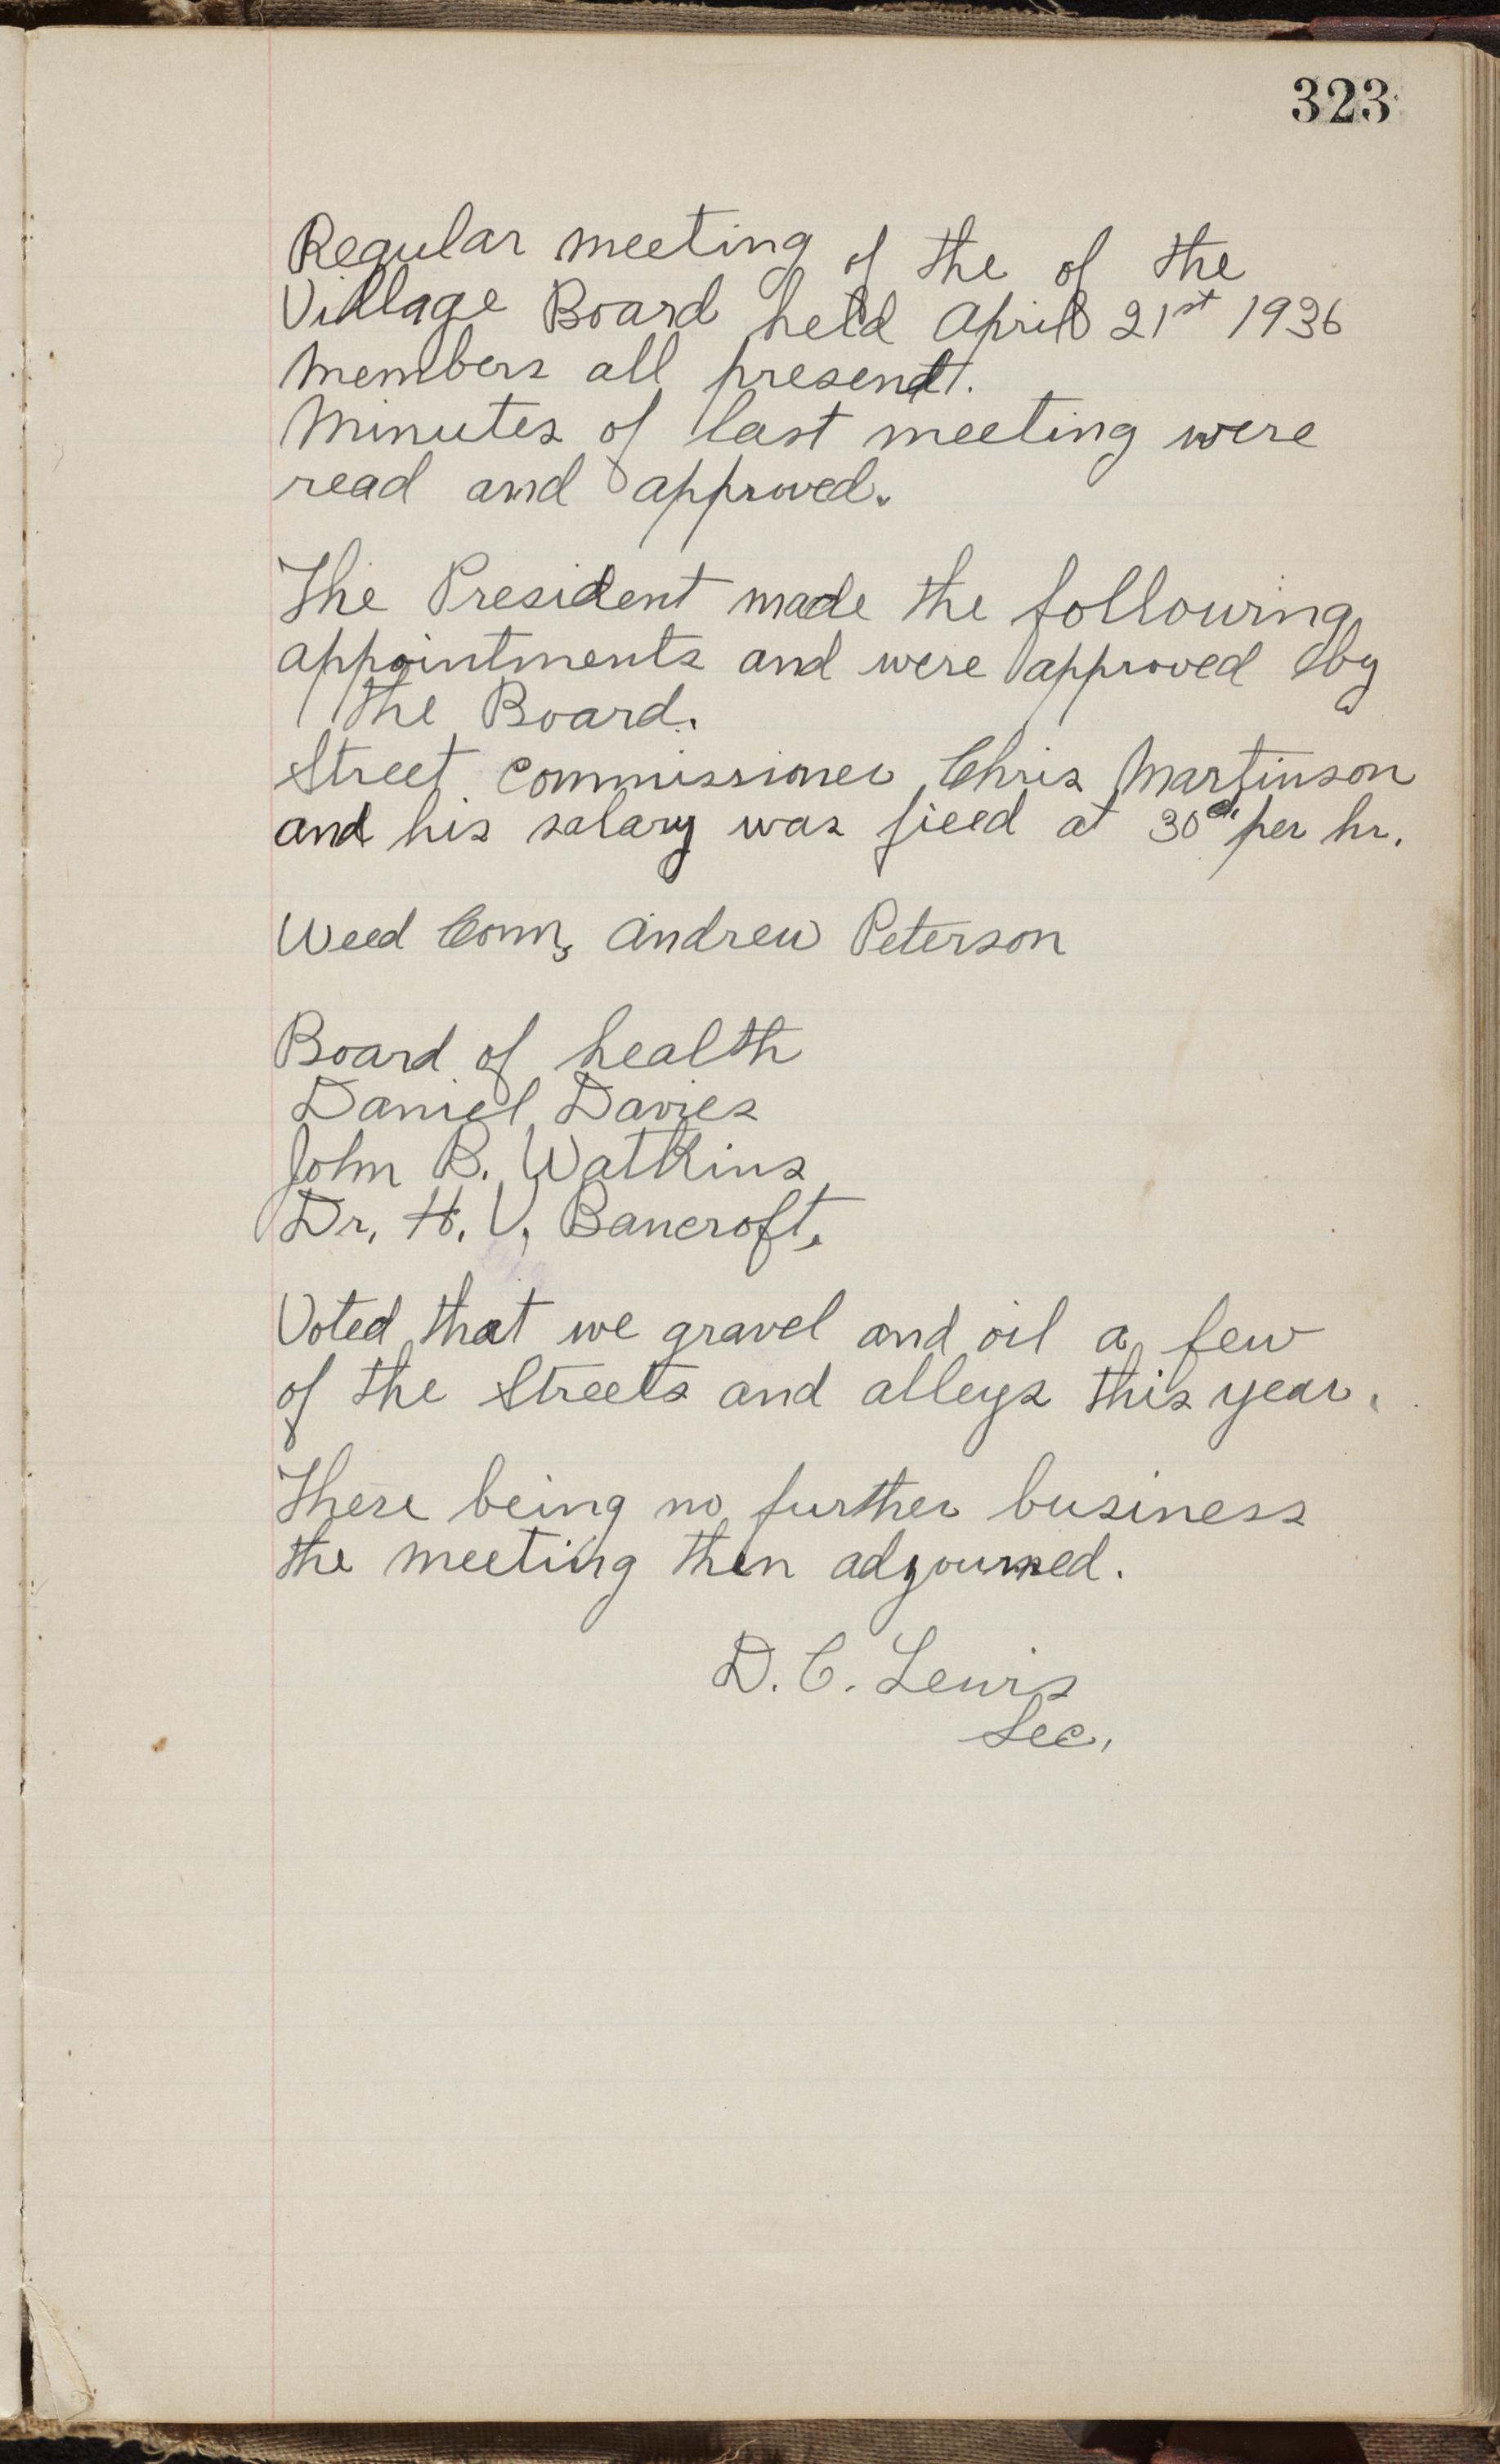 323
Regular meeting of the of the
Village Board held April 21st 1936
Members all present.
Minutes of last meeting were
read and approved.
The President made the following
appointments and were approved by
the Board.
Street Commissioner Chris Martinson
and his salary was fixed at 30¢ per hr.
Weed Com, Andrew Peterson
Board of health
Daniel Davies
John B. Watkins
Dr. H. V. Bancroft.
Voted that we gravel and oil a few
of the Streets and alleys this year.
There being no further business
the meeting then adjourned.
D. C. Lewis
Sec.